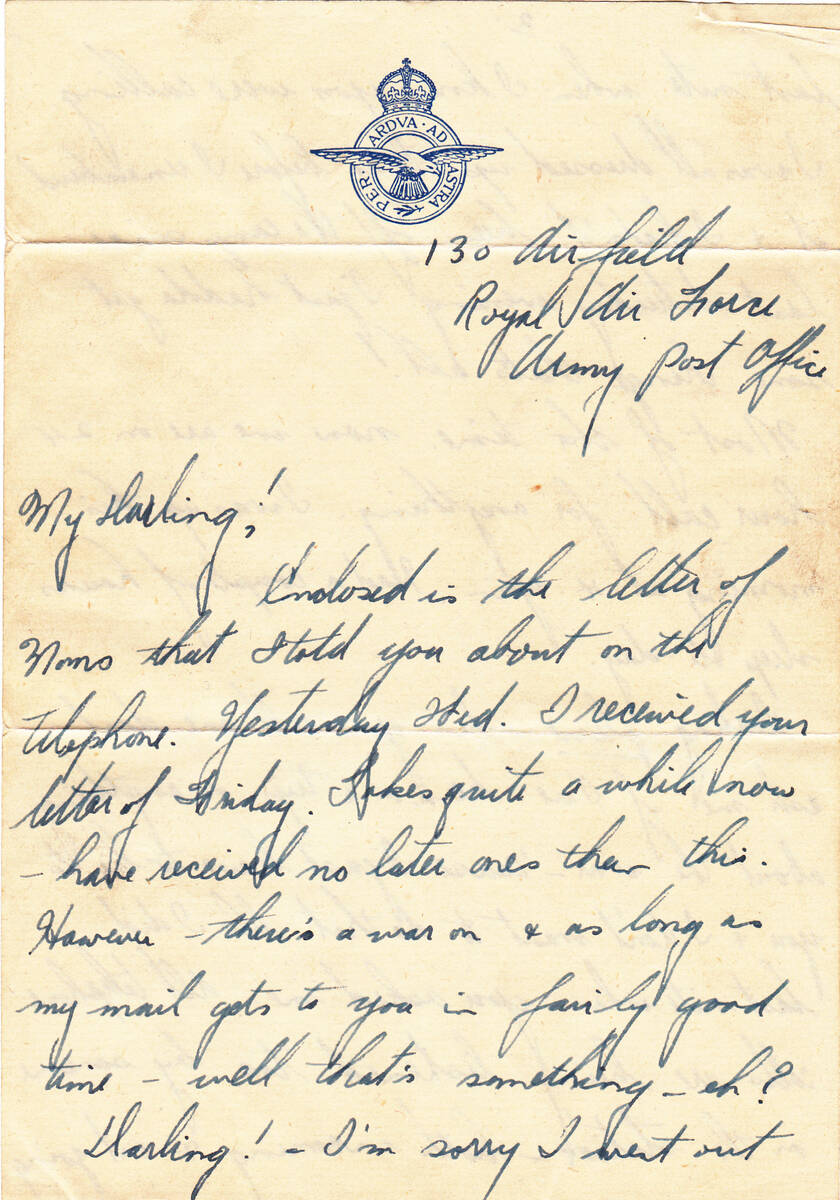 PER · ARDVA · AD ASTRA
130 Airfield
Royal Air Force
Army Post Office
My Darling!
Enclosed is the letter of
Moms that I told you about on the
telephone. Yesterday Wed. I received your
letter of Friday. Takes quite a while now
- have received no later ones than this.
However - there's a war on & as long as
my mail gets to you in fairily good
time - well that's something - eh?
Darling! - I'm sorry I went out